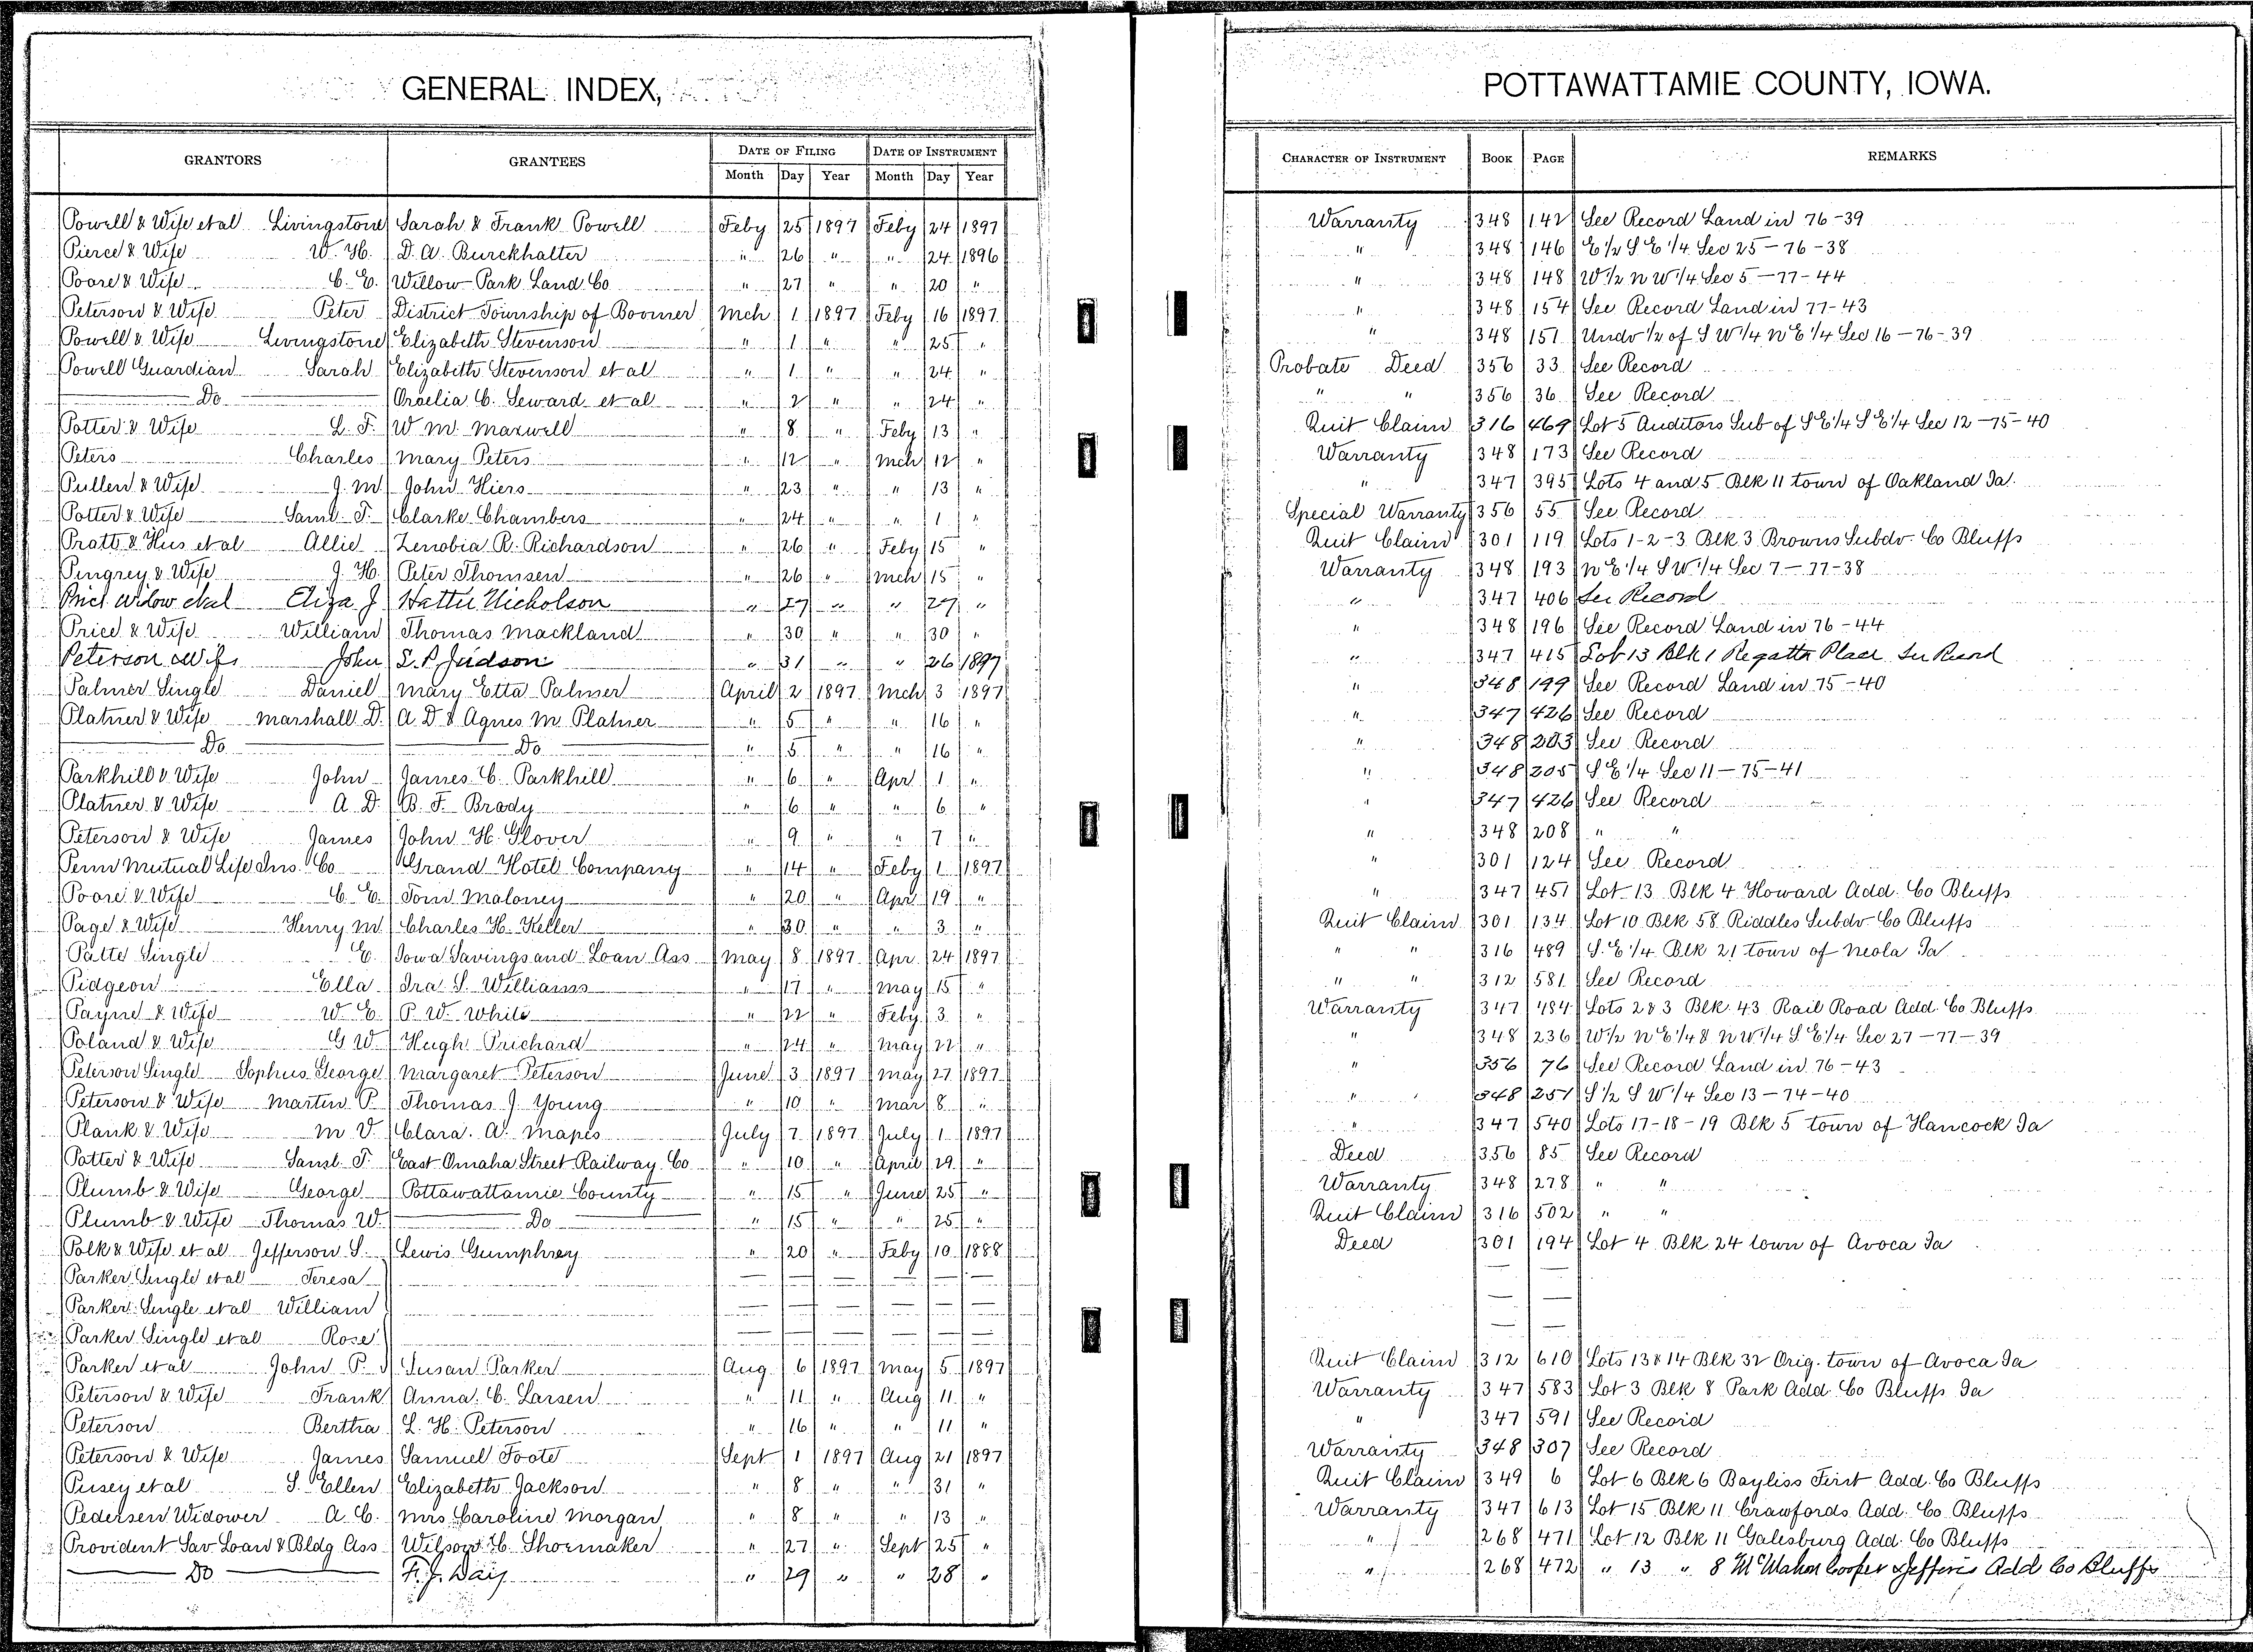 GENERAL INDEX,
GRANTORS GRANTEES DATE OF FILING DATE OF INSTRUMENT
Month Day Year Month Day Year
Powell & Wife et al Livingstone Sarah & Frank Powell Feby 25 1897 Feby 24 1897
Pierce & Wife W. H. D. A. Burckhalter " 26 " " 24 1896
Poore & Wife C. E. Willow Park Land Co " 27 " " 20 "
Peterson & Wife Peter District Township of Boomer Mch 1 1897 Feby 16 1897
Powell & Wife Livingstone Elizabeth Stevenson " 1 " " 25 "
Powell Guardian Sarah Elizabeth Stevenson et al " 1 " " 24 "
Do Oraelia C. Seward et al " 2 " " 24 "
Potter & Wife L. F. W M Maxwell " 8 " Feby 13 "
Peters Charles Mary Peters " 12 " Mch 12 "
Pullen & Wife J. M. John Hiers " 23 " " 13 "
Potter & Wife Saml. T. Clarke Chambers " 24 " " 1 "
Pratt & Hus et al Allie Zenobia R. Richardson " 26 " Feby 15 "
Pingrey & Wife J. H. Peter Thomsen " 26 " Mch 15 "
Price Widow et al Eliza J Hattie Nicholson " 27 " " 27 "
Price & Wife William Thomas Mackland " 30 " " 30 "
Peterson & Wife John S. P. Judson " 31 " " 26 1897
Palmer Single Daniel Mary Etta Palmer April 2 1897 Mch 3 1897
Platner & Wife Marshall D. A. D. & Agnes M Platner " 5 " " 16 "
Do Do " 5 " " 16 "
Parkhill & Wife John James C. Parkhill " 6 " Apr 1 "
Platner & Wife A. D. B. F. Brady " 6 " " 6 "
Peterson & Wife James John H. Glover " 9 " " 7 "
Penn Mutual Life Ins. Co Grand Hotel Company " 14 " Feby 1 1897
Poore & Wife C. E. Tom Maloney " 20 " Apr 19 "
Page & Wife Henry M Charles H. Keller " 30 " " 3 "
Patte Single E. Iowa Savings and Loan Ass May 8 1897 Apr 24 1897
Pidgeon Ella Ira S. Williams " 17 " May 15 "
Payne & Wife W E. P. W. White " 22 " Feby 3 "
Poland & Wife G W Hugh Prichard " 24 " May 22 "
Peterson Single Sophus George Margaret Peterson June 3 1897 May 27 1897
Peterson & Wife Martin P. Thomas J. Young " 10 " Mar 8 "
Plank & Wife M V. Clara. A. Mapes July 7 1897 July 1 1897
Potter & Wife Saml. T. East Omaha Street Railway Co " 10 " April 29 "
Plumb & Wife George Pottawattamie County " 15 " June 25 "
Plumb & Wife Thomas W. Do " 15 " " 25 "
Polk & Wife et al Jefferson S. Lewis Gumphrey " 20 " Feby 10 1888
Parker Single et al Teresa — — — — — —
Parker Single et al William — — — — — —
Parker Single et al Rose — — — — — —
Parker et al John P. Susan Parker Aug 6 1897 May 5 1897
Peterson & Wife Frank Anna. C. Larsen " 11 " Aug 11 "
Peterson Bertha L. H. Peterson " 16 " " 11 "
Peterson & Wife James Samuel Foote Sept 1 1897 Aug 21 1897
Pusey et al S. Ellen Elizabeth Jackson " 8 " " 31 "
Pedersen Widower A. C. Mrs Caroline Morgan " 8 " " 13 "
Provident Sav Loan & Bldg Ass Wilson H. Shoemaker " 27 " Sept 25 "
Do F. J. Day " 29 " " 28 "
POTTAWATTAMIE COUNTY, IOWA.
CHARACTER OF INSTRUMENT BOOK PAGE REMARKS
Warranty 348 142 See Record Land in 76-39
" 348 146 E 1/2 S E 1/4 Sec 25-76-38
" 348 148 W 1/2 N W 1/4 Sec 5-77-44
" 348 154 See Record Land in 77-43
" 348 151 Undv 1/2 of S W 1/4 N E 1/4 Sec 16-76-39
Probate Deed 356 33 See Record
" " 356 36 See Record
Quit Claim 316 469 Lot 5 Auditors Sub of S E 1/4 S E 1/4 Sec 12-75-40
Warranty 348 173 See Record
" 347 395 Lots 4 and 5 Blk 11 town of Oakland Ia.
Special Warranty 356 55 See Record
Quit Claim 301 119 Lots 1-2-3 Blk 3 Browns Subdv. Co Bluffs
Warranty 348 193 N E 1/4 S W 1/4 Sec 7-77-38
" 347 406 See Record
" 348 196 See Record Land in 76-44
" 347 415 Lot 13 Blk 1 Regatta Place See Record
" 348 199 See Record Land in 75-40
" 347 426 See Record
" 348 203 See Record
" 348 205 S E 1/4 Sec 11-75-41
" 347 426 See Record
" 348 208 " "
" 301 124 See Record
" 347 451 Lot 13 Blk 4 Howard Add. Co Bluffs
Quit Claim 301 134 Lot 10 Blk 58 Riddles Subdv Co Bluffs
" " 316 489 S. E 1/4 Blk 21 town of Neola Ia
" " 312 581 See Record
Warranty 347 484 Lots 2 & 3 Blk 43 Rail Road Add. Co Bluffs
" 348 236 W 1/2 N E 1/4 & N W 1/4 S E 1/4 Sec 27-77-39
" 356 76 See Record Land in 76-43
" 348 251 S 1/2 S W 1/4 Sec 13-74-40
" 347 540 Lots 17-18-19 Blk 5 town of Hancock Ia
Deed 356 85 See Record
Warranty 348 278 " "
Quit Claim 316 502 " "
Deed 301 194 Lot 4 Blk 24 town of Avoca Ia
— —
— —
— —
Quit Claim 312 610 Lots 13 & 14 Blk 32 Orig. town of Avoca Ia
Warranty 347 583 Lot 3 Blk 8 Park Add Co Bluffs Ia
" 347 591 See Record
Warranty 348 307 See Record
Quit Claim 349 6 Lot 6 Blk 6 Bayliss First Add. Co Bluffs
Warranty 347 613 Lot 15 Blk 11 Crawfords Add. Co Bluffs
" 268 471 Lot 12 Blk 11 Galesburg Add. Co Bluffs
" 268 472 " 13 " 8 McMahon Cooper & Jefferis Add Co Bluffs